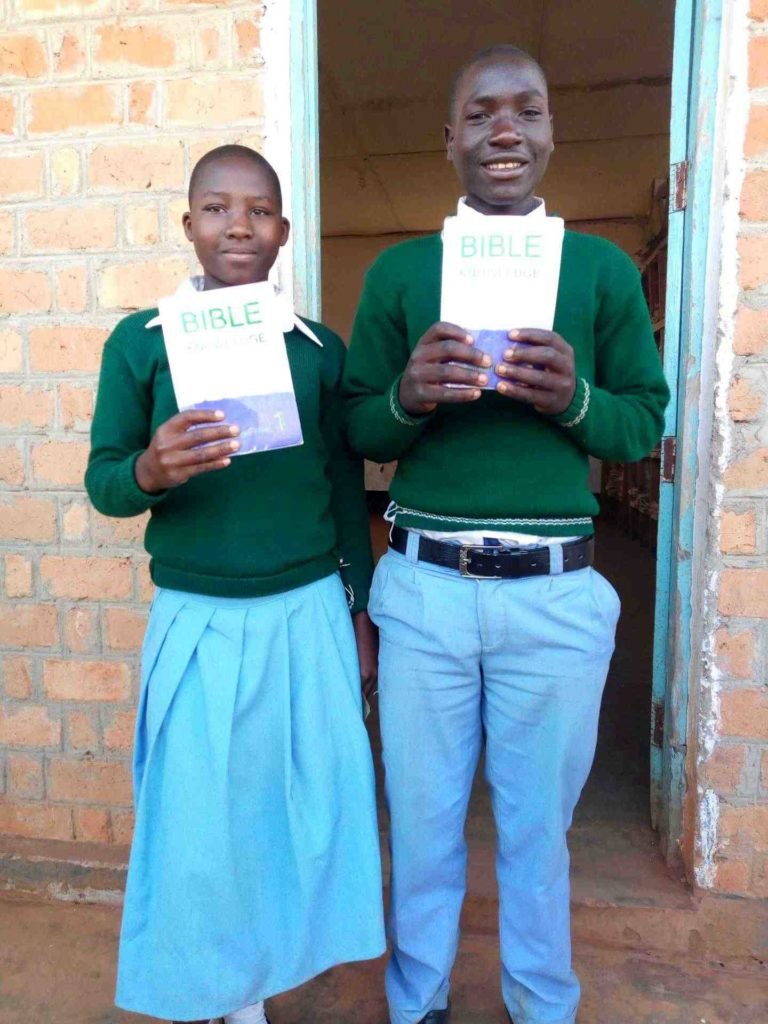 BIBLE
KNOWLEDGE
BIBLE
KNOWLEDGE
1